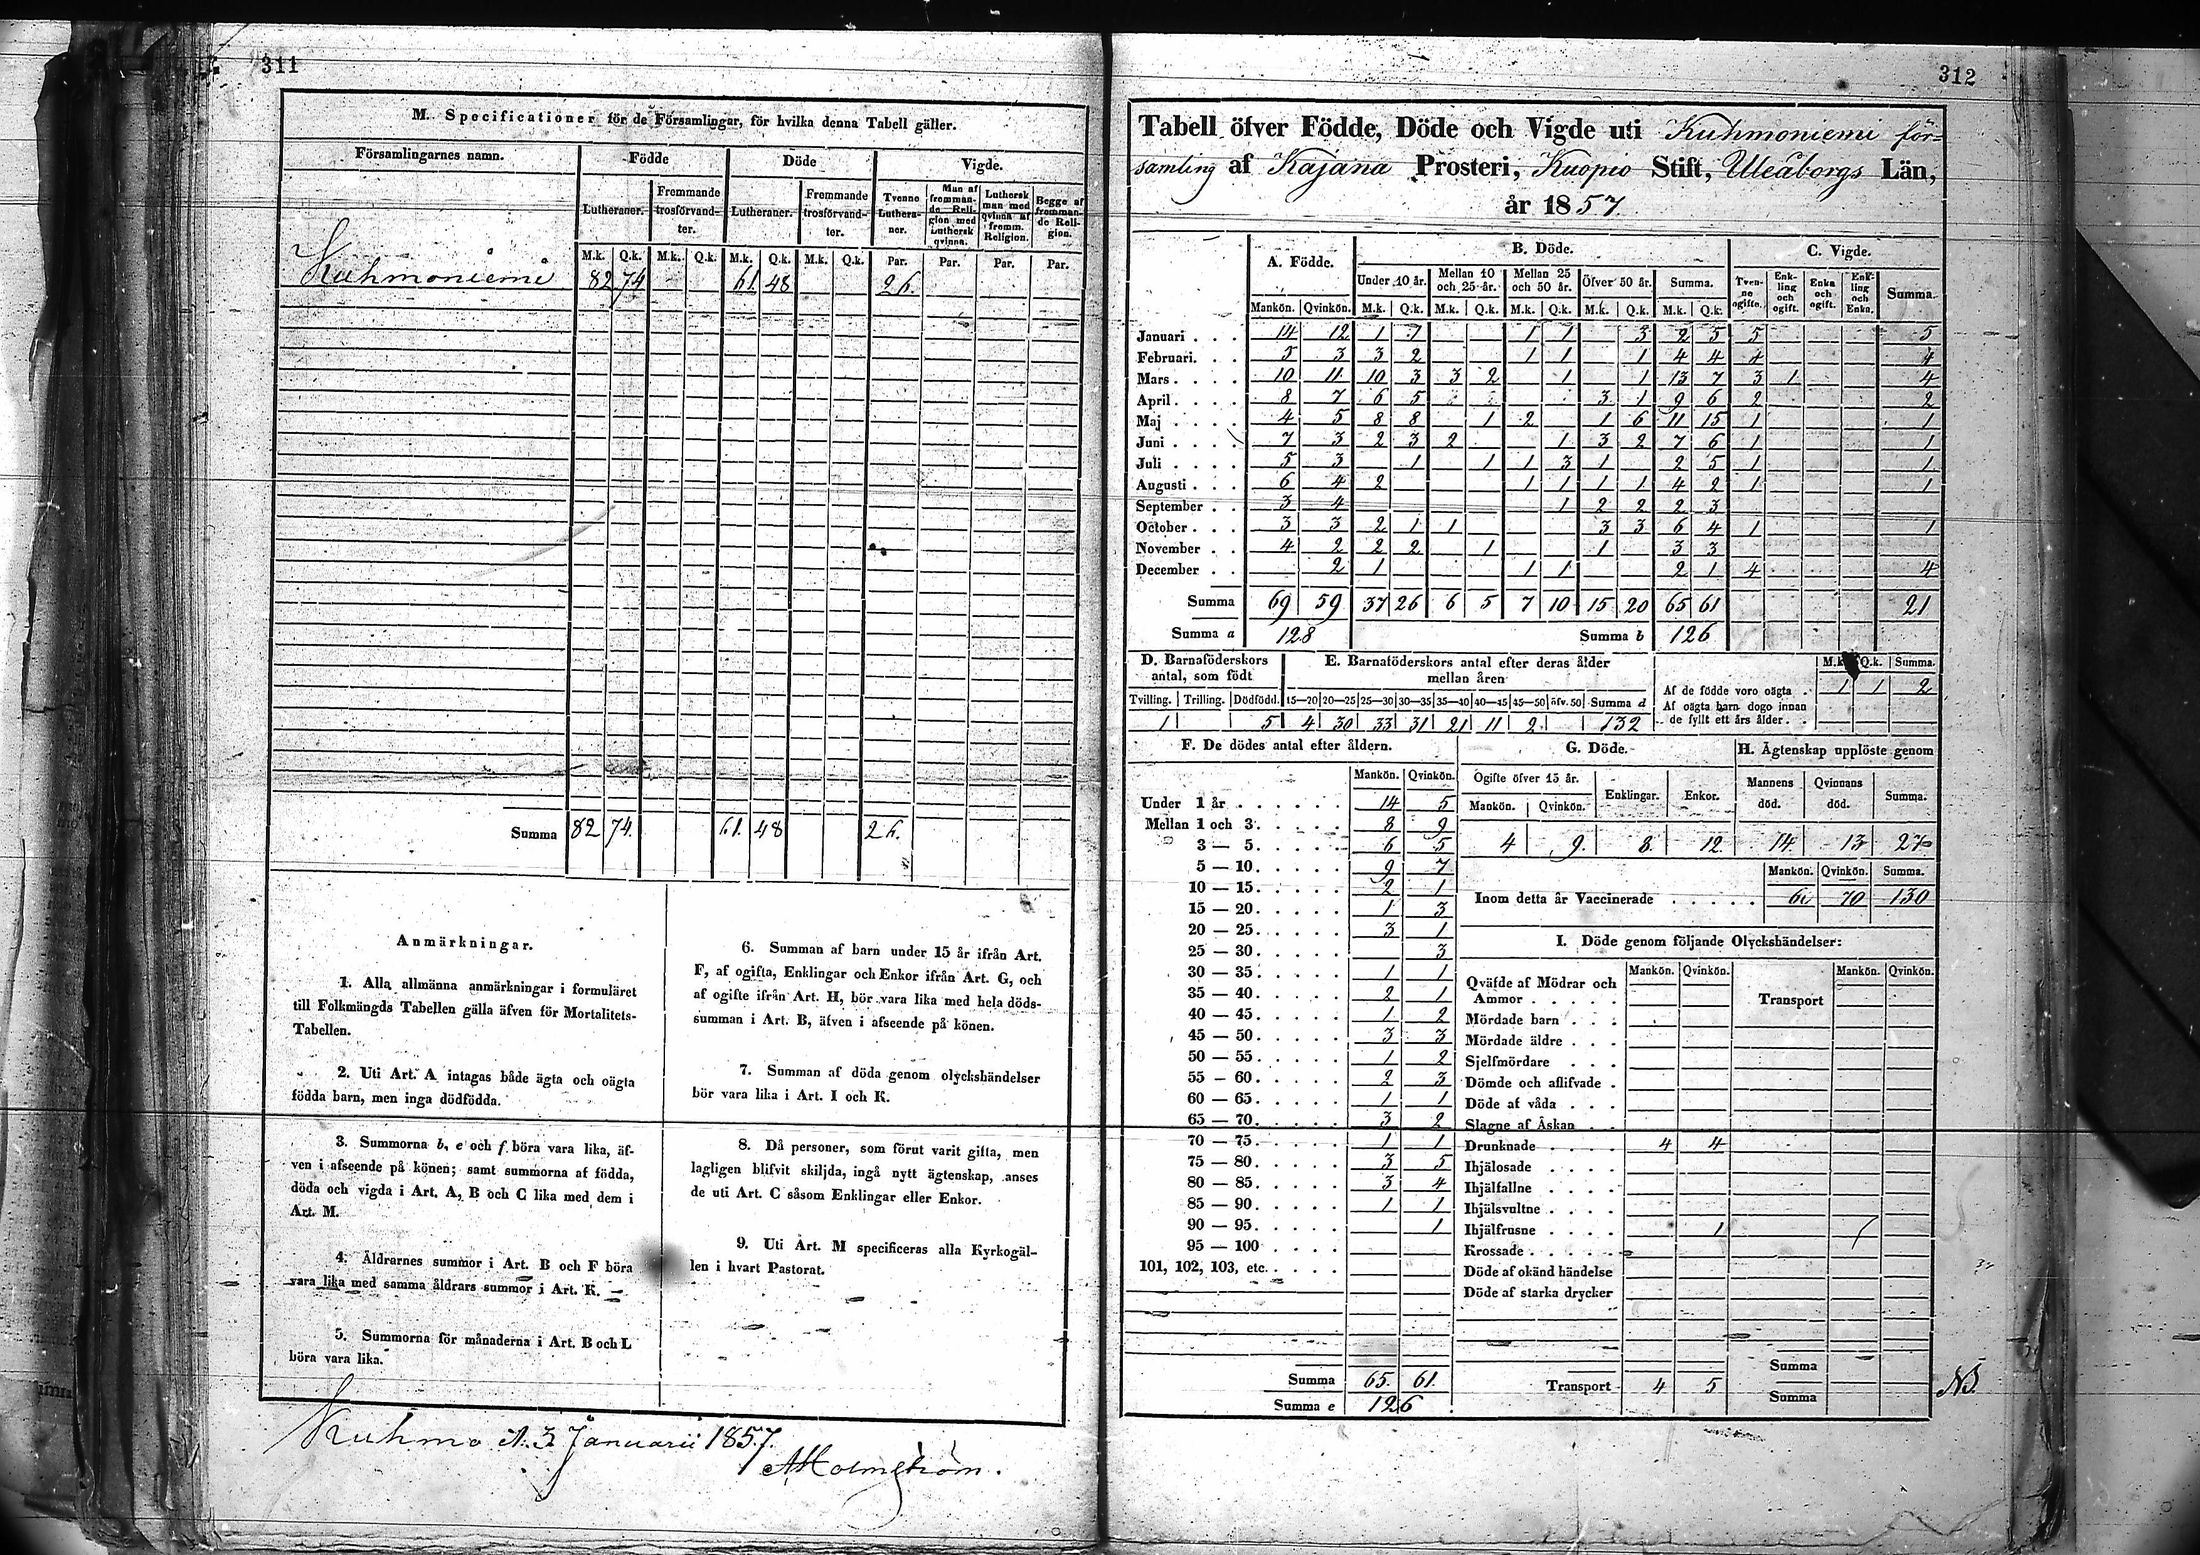 311
M. Specificationer för de Församlingar, för hvilka denna Tabell gäller.
Församlingarnes namn. Födde Döde Vigde.
Lutheraner. Fremmande trosförvandter. Lutheraner. Fremmande trosförvandter. Tvenne Lutheraner. Man af fremmande Religion med Luthersk qvinna. Luthersk man med qvinna af fremm. Religion. Begge af fremmande Religion.
M.k. Q.k. M.k. Q.k. M.k. Q.k. M.k. Q.k. Par. Par. Par. Par.
Kuhmoniemi 82 74 61. 48 26.
Summa 82 74. 61. 48 26.
Anmärkningar.
1. Alla allmänna anmärkningar i formuläret
till Folkmängds Tabellen gälla äfven för Mortalitets-
Tabellen.
2. Uti Art. A intagas både ägta och oägta
födda barn, men inga dödfödda.
3. Summorna b, e och f böra vara lika, äf-
ven i afseende på könen; samt summorna af födda,
döda och vigda i Art. A, B och C lika med dem i
Art. M.
4. Åldrarnes summor i Art. B och F böra
vara lika med samma åldrars summor i Art. K.
5. Summorna för månaderna i Art. B och L
böra vara lika.
6. Summan af barn under 15 år ifrån Art.
F, af ogifta, Enklingar och Enkor ifrån Art. G, och
af ogifte ifrån Art. H, bör vara lika med hela döds-
summan i Art. B, äfven i afseende på könen.
7. Summan af döda genom olyckshändelser
bör vara lika i Art. I och K.
8. Då personer, som förut varit gifta, men
lagligen blifvit skiljda, ingå nytt ägtenskap, anses
de uti Art. C såsom Enklingar eller Enkor.
9. Uti Art. M specificeras alla Kyrkogäl-
len i hvart Pastorat.
Kuhmo d. 3 Januarii 1857.
AHolmström.
312
Tabell öfver Födde, Döde och Vigde uti Kuhmoniemi för-
samling af Kajana Prosteri, Kuopio Stift, Uleåborgs Län,
år 1857.
A. Födde. B. Döde. C. Vigde.
Under 10 år. Mellan 10 och 25 år. Mellan 25 och 50 år. Öfver 50 år. Summa. Tvenne ogifte. Enkling och ogift. Enka och ogift. Enkling och Enka. Summa.
Mankön. Qvinkön. M.k. Q.k. M.k. Q.k. M.k. Q.k. M.k. Q.k. M.k. Q.k.
Januari . . . 14 12 1 1 1 1 3 2 5 5 5
Februari. . . 5 3 3 2 1 1 1 4 4 4 4
Mars . . . . 10 11 10 3 3 2 1 1 13 7 3 1 4
April . . . . 8 7 6 5 3 1 9 6 2 2
Maj . . . . 4 5 8 8 1 2 1 6 11 15 1 1
Juni . . . . 7 3 2 3 2 1 3 2 7 6 1 1
Juli . . . . 5 3 1 1 1 3 1 2 5 1 1
Augusti . . . 6 4 2 1 1 1 1 4 2 1 1
September . . 3 4 1 2 2 2 3
October . . . 3 3 2 1 1 3 3 6 4 1 1
November . . 4 2 2 2 1 1 3 3
December . . 2 1 1 1 2 1 4 4
Summa 69 59 37 26 6 5 7 10 15 20 65 61 21
Summa a 128 Summa b 126
D. Barnaföderskors antal, som födt
E. Barnaföderskors antal efter deras ålder mellan åren
M.k. Q.k. Summa.
Tvilling. Trilling. Dödfödd. 15—20 20—25 25—30 30—35 35—40 40—45 45—50 öfv. 50 Summa d
1 5 4 30 33 31 21 11 2 132
Af de födde voro oägta . 1 1 2
Af oägta barn dogo innan
de fyllt ett års ålder . .
F. De dödes antal efter åldern.
Mankön. Qvinkön.
Under 1 år . . . . . . 14 5
Mellan 1 och 3. . . . . 8 9
3 — 5. . . . . 6 5
5 — 10. . . . . 9 7
10 — 15. . . . . 2 1
15 — 20. . . . . 1 3
20 — 25. . . . . 3 1
25 — 30. . . . . 3
30 — 35. . . . . 1 1
35 — 40. . . . . 2 1
40 — 45. . . . . 1 2
45 — 50. . . . . 3 3
50 — 55. . . . . 1 2
55 — 60. . . . . 2 3
60 — 65. . . . . 1 1
65 — 70. . . . . 3 2
70 — 75. . . . . 1 1
75 — 80. . . . . 3 5
80 — 85. . . . . 3 4
85 — 90. . . . . 1 1
90 — 95. . . . . 1
95 — 100 . . . .
101, 102, 103, etc. . . . .
Summa 65. 61.
Summa e 126
G. Döde.
Ogifte öfver 15 år. Enklingar. Enkor.
Mankön. Qvinkön.
4 9. 8. 12
H. Ägtenskap upplöste genom
Mannens död. Qvinnans död. Summa.
14 13 27
Mankön. Qvinkön. Summa.
Inom detta år Vaccinerade . . . . . 70 130
I. Döde genom följande Olyckshändelser:
Mankön. Qvinkön. Mankön. Qvinkön.
Qväfde af Mödrar och
Ammor . . . . . Transport
Mördade barn . . .
Mördade äldre . . .
Sjelfmördare . . .
Dömde och aflifvade .
Döde af våda . . .
Slagne af Åskan . .
Drunknade . . . . 4 4
Ihjälosade . . . .
Ihjälfallne . . . .
Ihjälsvultne . . . .
Ihjälfrusne . . . . 1
Krossade . . . . .
Döde af okänd händelse
Döde af starka drycker
Summa
Transport 4 5 Summa
NB.